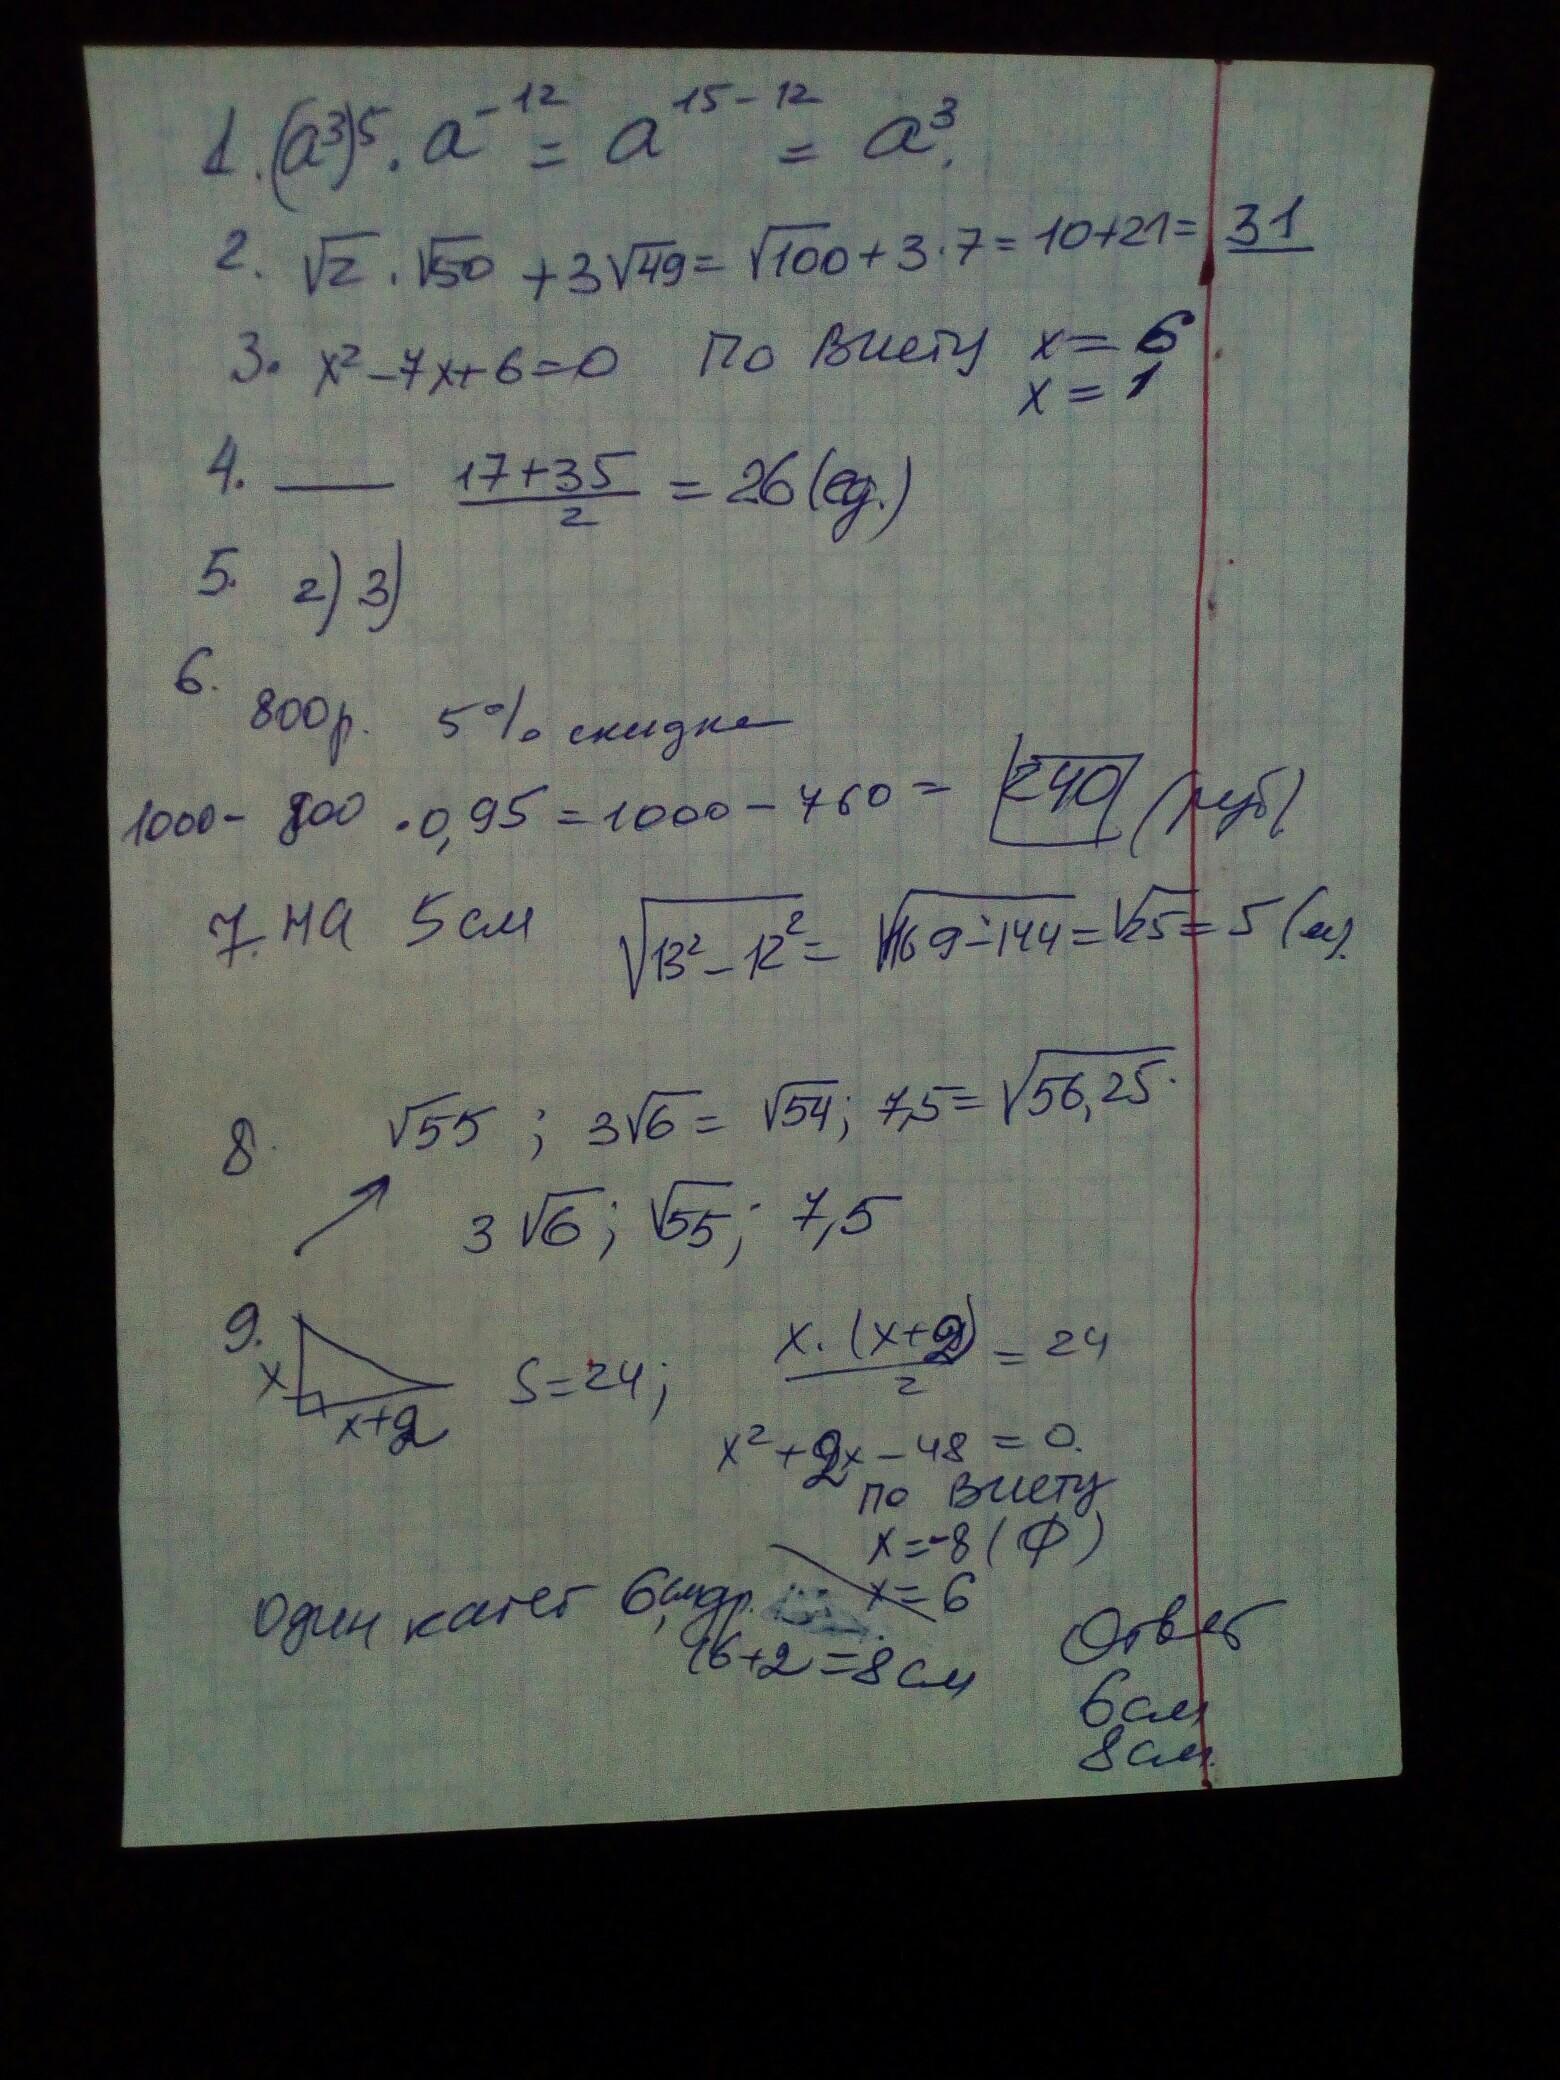 1. (a³)⁵ · a⁻¹² = a¹⁵⁻¹² = a³.
2. √2 · √50 + 3√49 = √100 + 3·7 = 10+21 = 31
3. x² – 7x + 6 = 0 По Виету x = 6
x = 1
4. — (17+35)/2 = 26 (ед.)
5. 2) 3)
6.
800р. 5% скидка
1000 – 800 · 0,95 = 1000 – 760 = 240 (руб)
7. на 5 см √(13² – 12²) = √(169 – 144) = √25 = 5 (м).
8. √55 ; 3√6 = √54; 7,5 = √56,25.
3√6; √55; 7,5
9. x x+2 S=24; (x·(x+2))/2 = 24
x² + 2x – 48 = 0.
по Виету
x = -8 (Ф)
x = 6
Один катет 6см, др.
6+2 = 8см
Ответ
6см
8см.